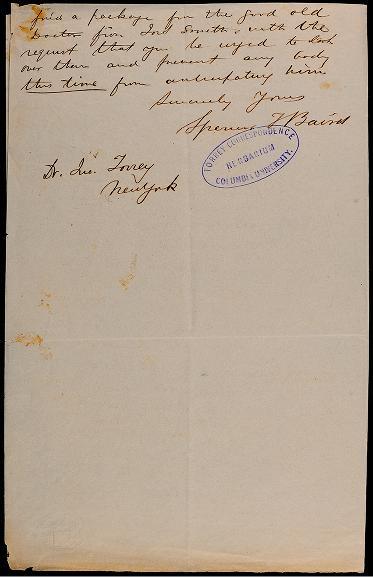 find a package from the good old
Doctor from Jno Smith, with the
request that you be urged to look
over them and prevent any body
this time from anticipating him
Sincerely Yours
Spencer F Baird
Dr. Jno. Torrey
New York
TORREY CORRESPONDENCE
HERBARIUM
COLUMBIA UNIVERSITY.